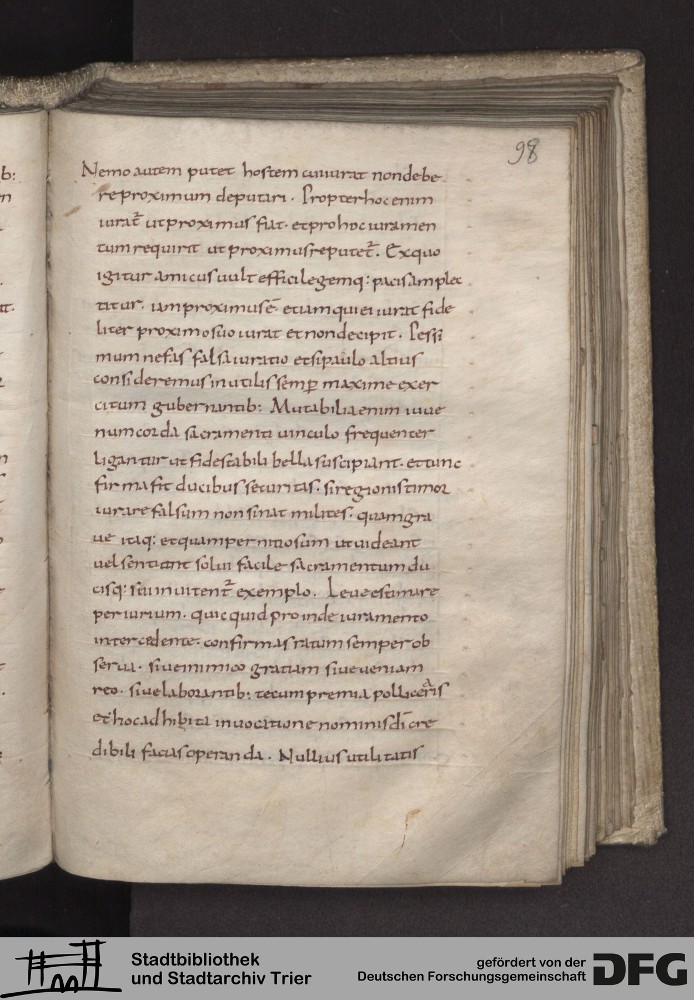 98
Nemo autem putet hostem cui iurat non debe
re proximum deputari. Propter hoc enim
iurat̄ ut proximus fiat. et pro hoc iuramen
tum requirit ut proximus reputet̄. Ex quo
igitur amicus uult effici legemq: pacis amplec
titur. iam proximus ē etiam qui ei iurat fide
liter proximo suo iurat et non decipit. Pessi
mum nefas falsa iuratio et si paulo altius
consideremus inutilis semp̄ maxime exer
citum gubernantib: Mutabilia enim iuue
num corda sacramenti uinculo frequenter
ligantur ut fide stabili bella suscipiant. et tunc
firma fit ducibus securitas. si regionis timor
iurare falsum non sinat milites. quam gra
ue itaq: et quam perniciosum ut uideant
uel sentiant solui facile sacramentum du
cisq: sui inuitent̄ exemplo. Leue estimare
periurium. quicquid proinde iuramento
intercedente. confirmas ratum semper ob
serua. siue inimico gratiam siue ueniam
reo. siue laborantib: tecum premia polliceris
et hoc adhibita inuocatione nominis dī cre
dibili facias operanda. Nullius utilitatis
b:
Stadtbibliothek
und Stadtarchiv Trier
gefördert von der
Deutschen Forschungsgemeinschaft
DFG